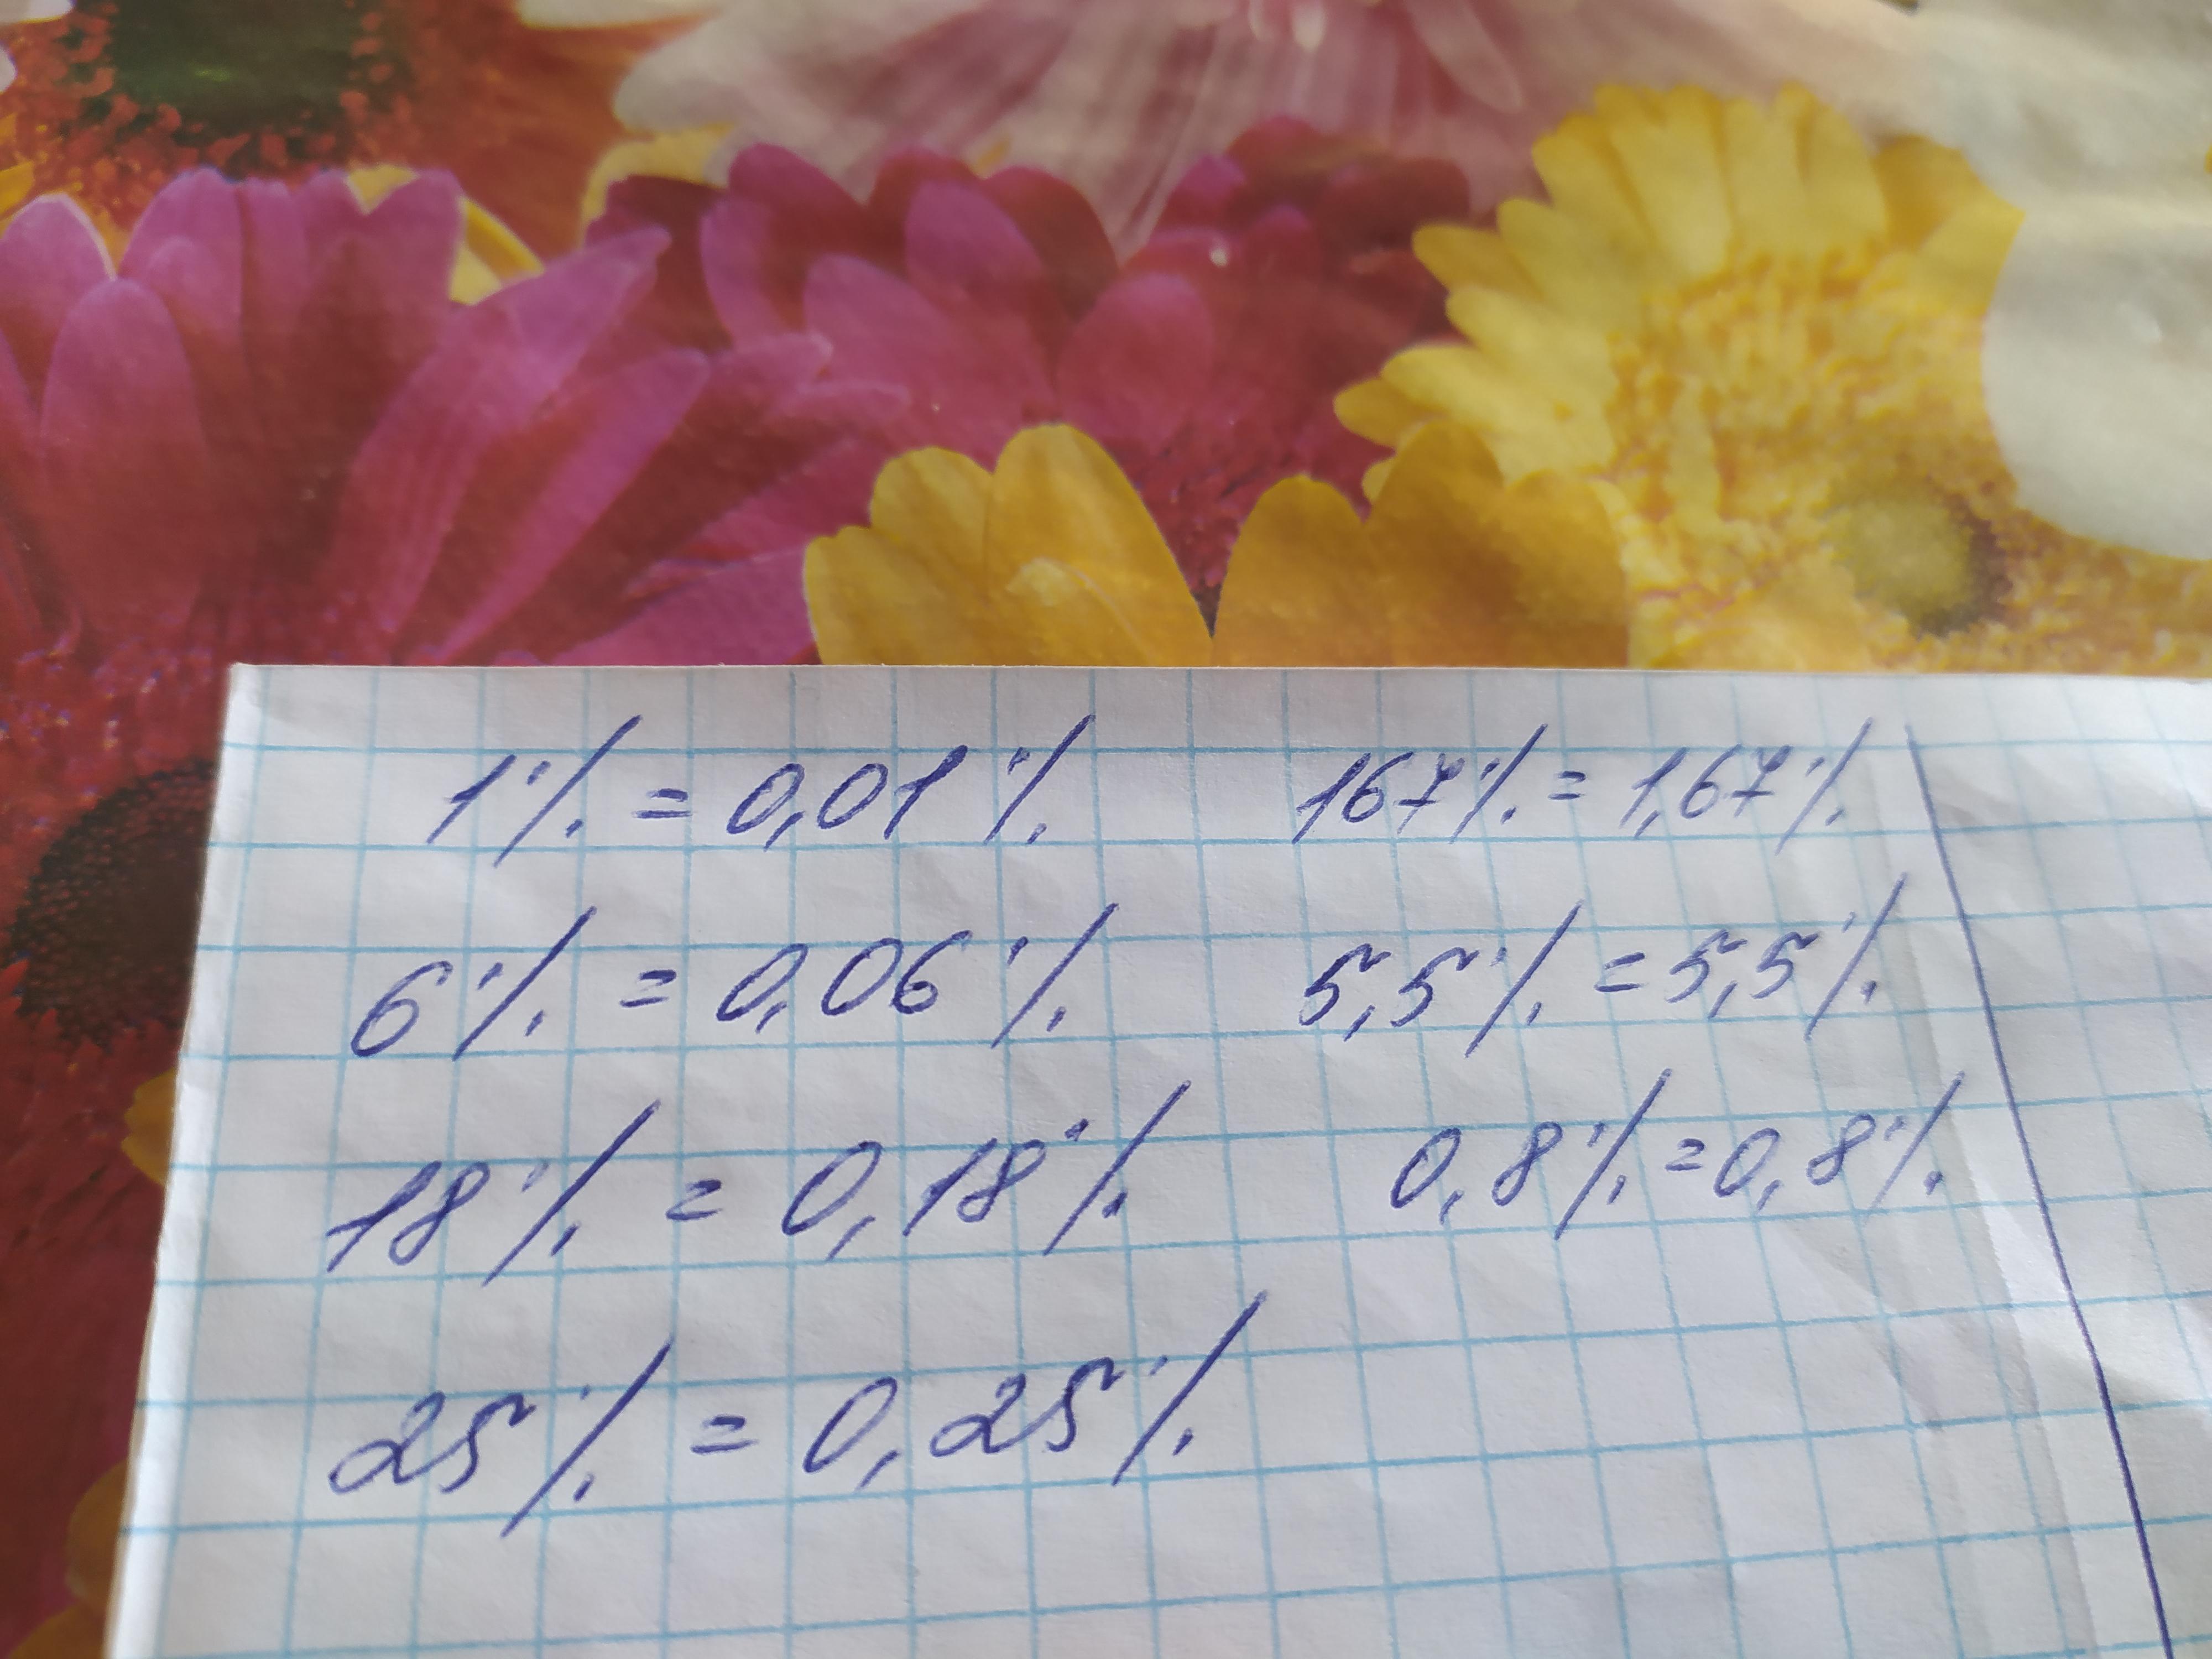 1% = 0,01%
6% = 0,06%
18% = 0,18%
25% = 0,25%
167% = 1,67%
5,5% = 5,5%
0,8% = 0,8%